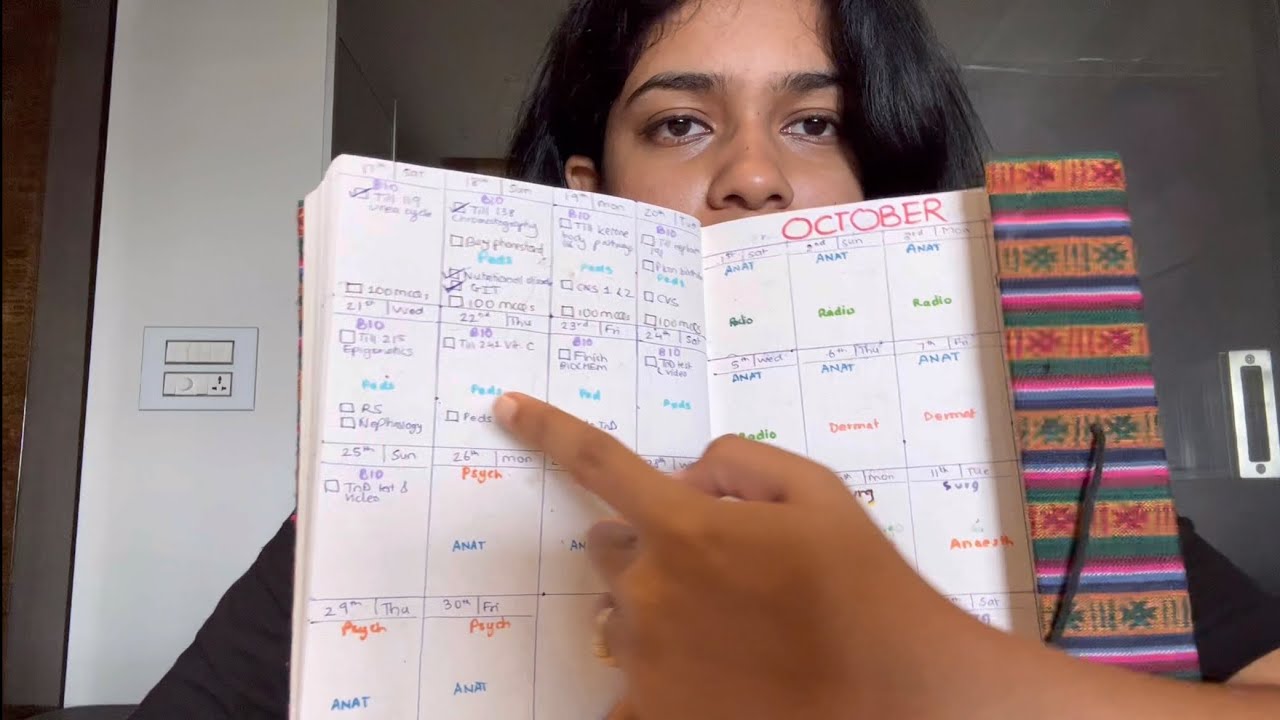 17th Sat
BIO
Till 119
urea cycle
100 mcqs
18th Sun
BIO
Till 138
Chromatography
Peds
Nutritional
GIT
100 mcqs
19th mon
BIO
Till ketone
body pathway
Peds
CNS 1 & 2
100 mcqs
20th Tue
BIO
Till
Peds
CVS
100 mcqs
21st Wed
BIO
Till 215
Epigenetics
Peds
RS
Nephrology
22nd Thu
BIO
Till 241 Vit. C
Peds
Peds
23rd Fri
BIO
Finish
BIOCHEM
Ped
TnD
24th Sat
BIO
TnD test
video
Peds
25th Sun
BIO
TnD test &
videos
26th mon
Psych
ANAT
AN
29th Thu
Psych
ANAT
30th Fri
Psych
ANAT
OCTOBER
1st Sat
ANAT
Radio
2nd Sun
ANAT
Radio
3rd Mon
ANAT
Radio
5th Wed
ANAT
Radio
6th Thu
ANAT
Dermat
7th Fri
ANAT
Dermat
mon
11th Tue
Surg
Anaesth
Sat